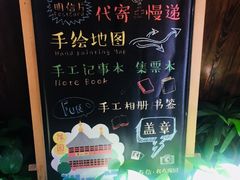 明信片 代寄 慢递
Postcard
手绘地图
Hand painting Map
手工记事本 集票本
Note Book
手工相册 书签
盖章